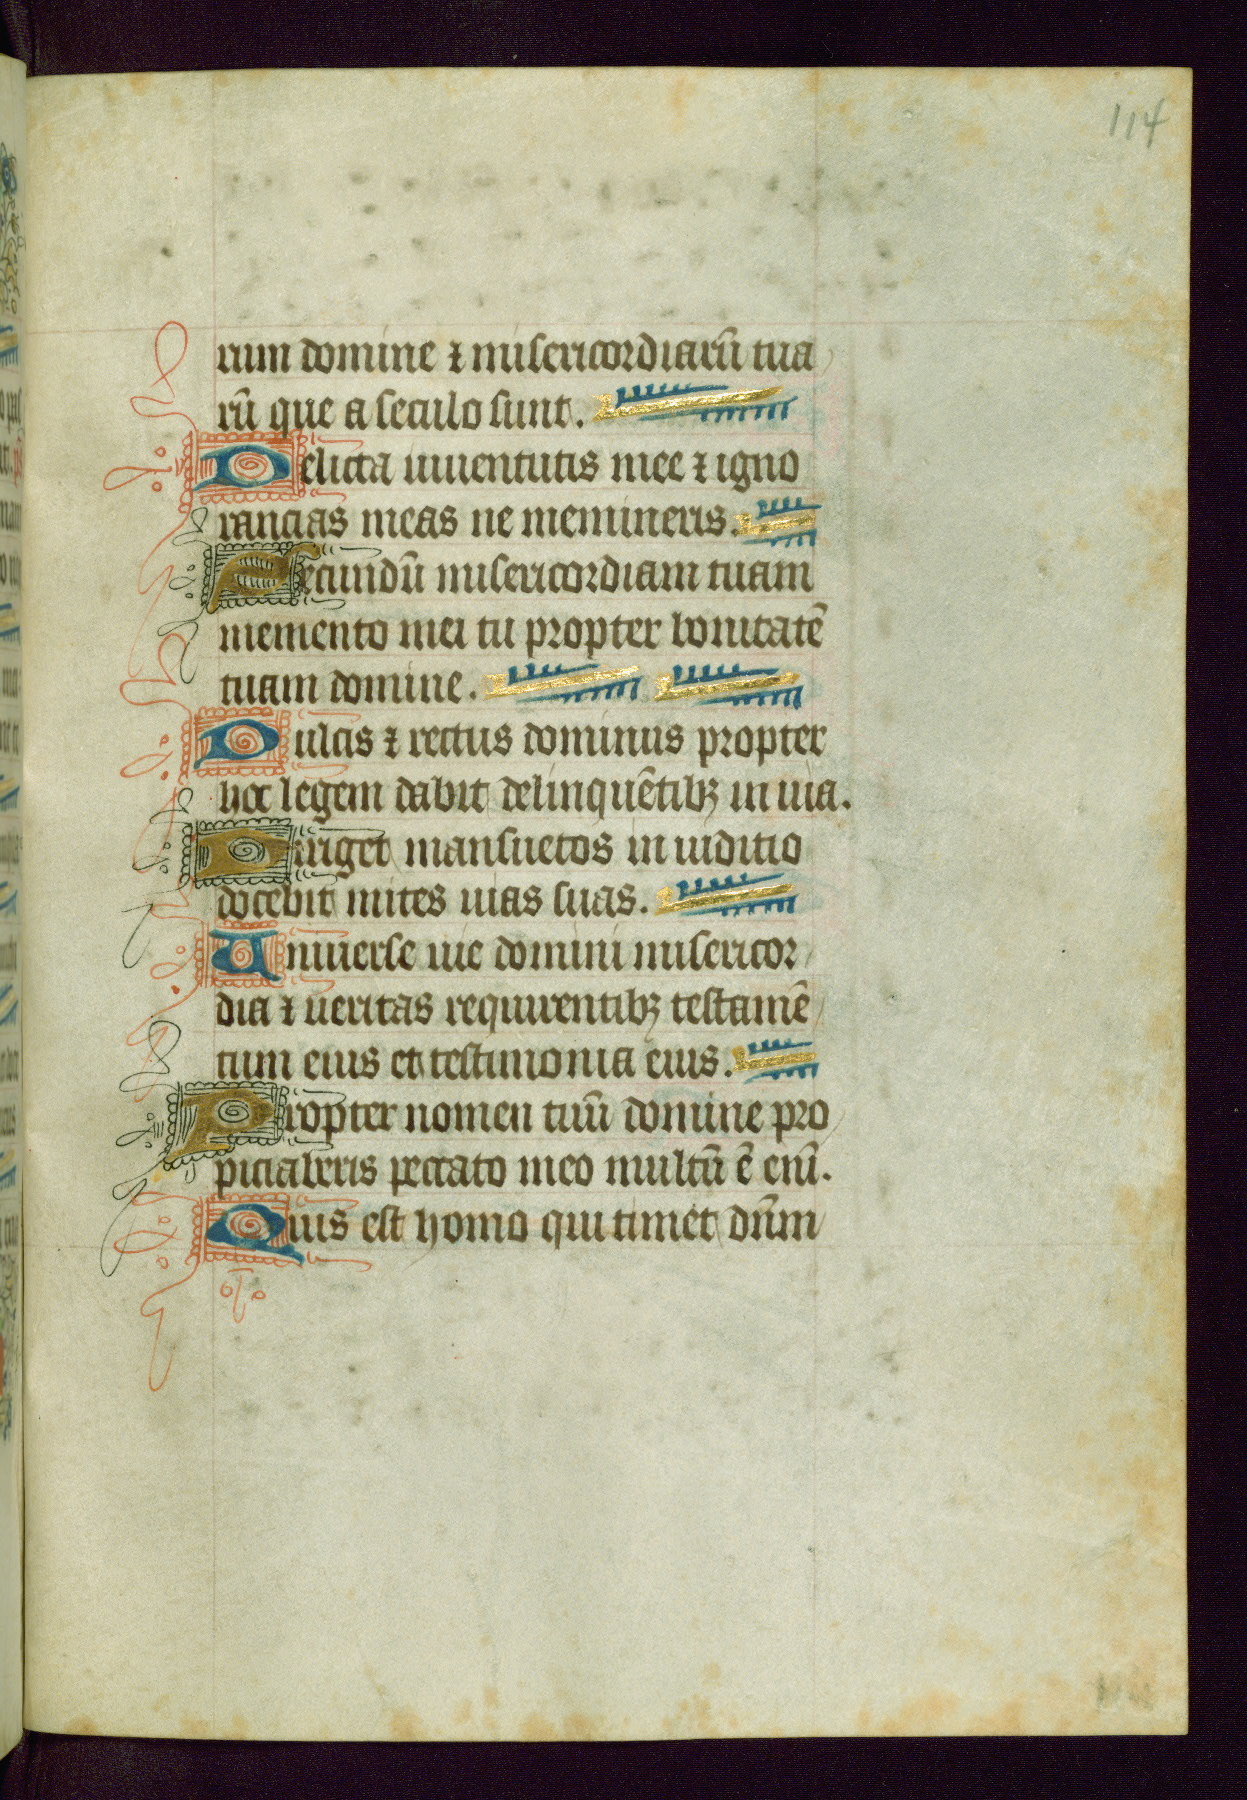 114
rum domine ⁊ misericordiarū tua
rū que a seculo sunt.
Delicta iuuentutis mee ⁊ igno
rancias meas ne memineris.
Secundū misericordiam tuam
memento mei tu propter bonitatē
tuam domine.
Dulcis ⁊ rectus dominus propter
hoc legem dabit delinquētibꝫ in uia.
Diriget mansuetos in iuditio
docebit mites uias suas.
Uniuerse uie domini misericor
dia ⁊ ueritas requirentibꝫ testamē
tum eius et testimonia eius.
Propter nomen tuū domine pro
piciaberis peccato meo multū ē enī.
Quis est homo qui timet dn̄m